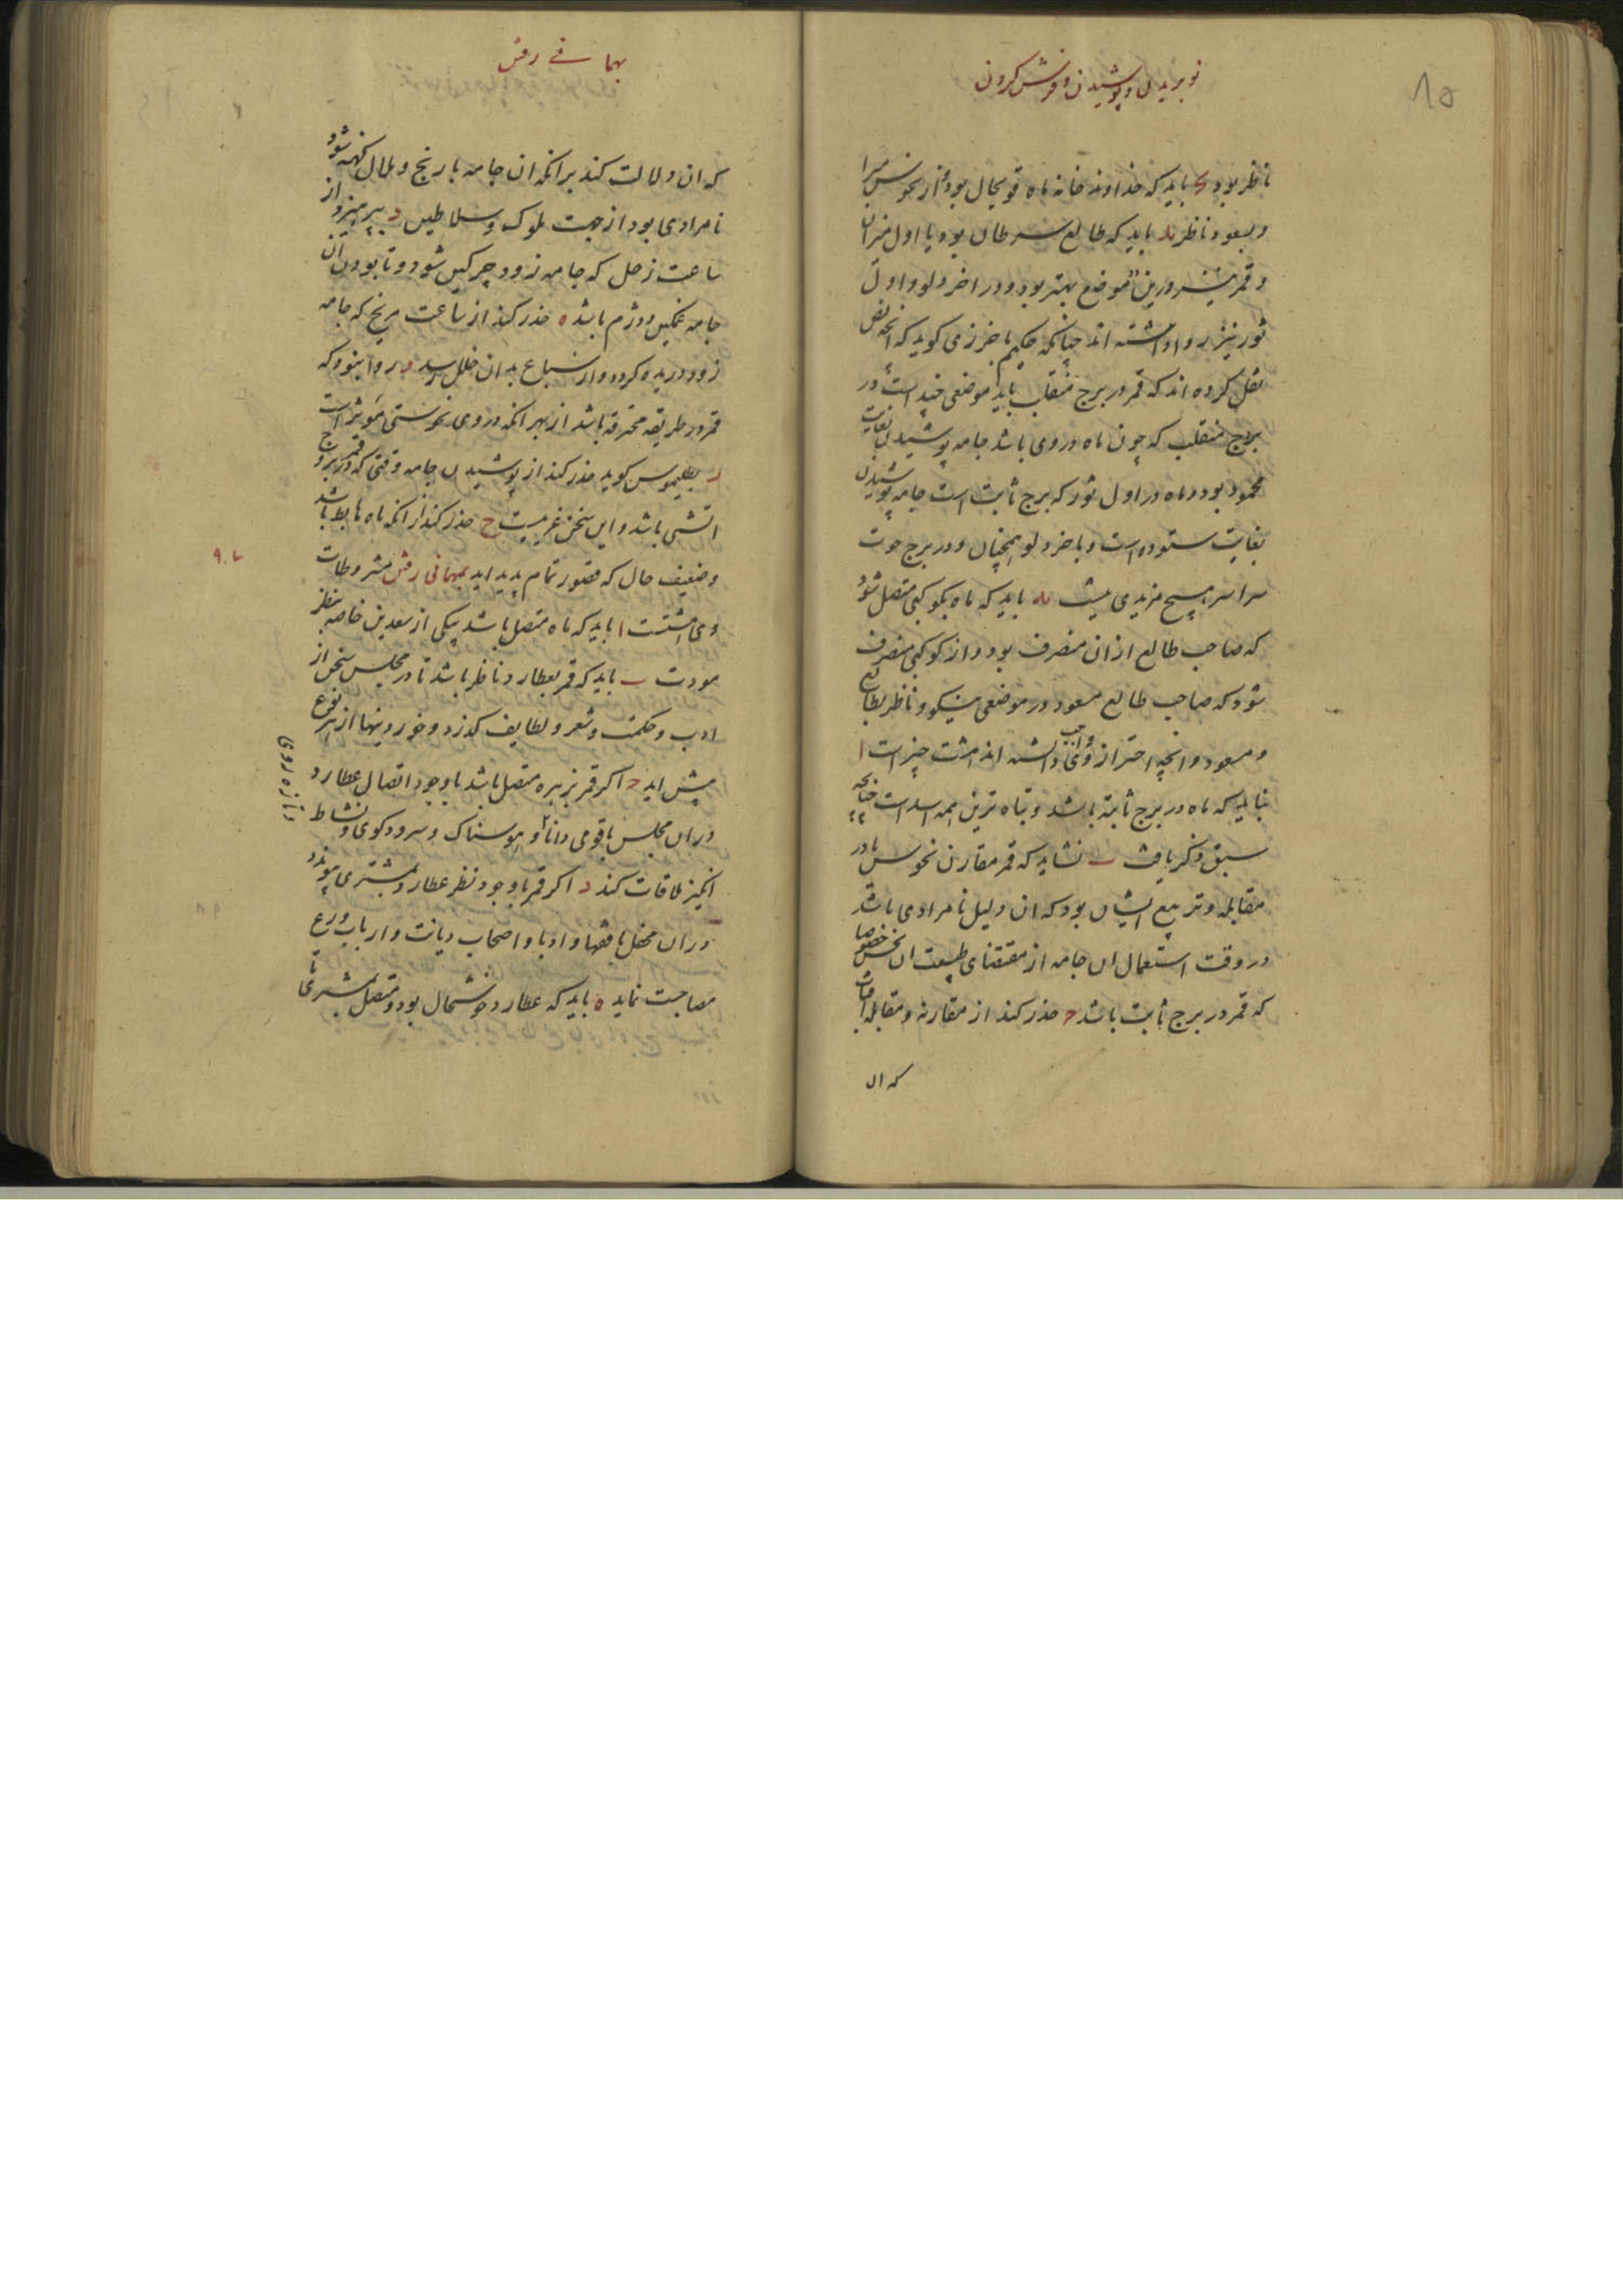 نو بریدن و پوشیدن و فرش کردن
ناظر بود باید که خداوند خانه ماه قویحال بود و از نحوس مبرا
و بسعود ناظر ید باید که طالع سرطان بود یا اول میزان
و قمر نیز درین دو موضع بهتر بود و در اخر دلو و اول
ثور نیز روا داشته اند چنانکه حکیم باخرزی کوید که انچه نقل
نقل کرده اند که قمر در برج منقلب باید موضعی چند است در
برج منقلب که چون ماه در وی باشد جامه پوشیدن بغایت
محمود بود و ماه در اول ثور که برج ثابت است جامه پوشیدن
بغایت ستوده است و باخر دلو همچنان و در برج حوت
سراسر هیچ مزیدی نیست یه باید که ماه بکوکبی متصل شود
که صاحب طالع ازان منصرف بود و از کوکبی منصرف
شود که صاحب طالع مسعود در موضعی نیکو و ناظر بطالع
و مسعود و انچه احتراز ازوی واجب داشته اند هشت چیز است ا
نباید که ماه در برج ثابته باشد و تباه ترین همه اسد است چنانچه
سبق ذکر یافت ب نشاید که قمر مقارن نحوس یا در
مقابله و تربیع ایشان بود که ان دلیل نامرادی باشد
در وقت استعمال ان جامه از مقتضای طبیعت ان نحس خصوصا
که قمر در برج ثابت باشد ج حذر کند از مقارنه و مقابله افتاب
که ان
بهما نے رفتن
که ان دلالت کند برانکه ان جامه با رنج و ملال کهنه شود
نامرادی بود از جهت ملوک و سلاطین د بپرهیزد از
ساعت زحل که جامه زود چرکین شود و تا بودن ان
جامه غمکین و دژم باشد ه حذر کند از ساعت مریخ که جامه
زود دریده کردد و از سباع بدان خلل رسد و روا نبود که
قمر در طریقه محترقه باشد از بهر انکه در وی نحوستی موثر است
ز بطلیموس کوید حذر کند از پوشیدن جامه وقتی که قمر در بروج
اتشی باشد و این سخن غریبست ح حذر کند از انکه ماه هابط باشد
و ضعیف حال که قصور تمام پدید اید بمهمانی رفتن مشروطات
وی هشتست ا باید که ماه متصل باشد بیکی از سعدین خاصه بنظر
مودت ب باید که قمر بعطارد ناظر باشد تا در مجلس سخن از
ادب و حکمت و شعر و لطایف کذرد و خوردنیها از هر نوع
پیش اید ج اکر قمر بزهره متصل باشد با وجود اتصال عطارد
دران مجلس با قومی دانا و هوسناک و سرودکوی و نشاط
انکیز ملاقات کند د اکر قمر با وجود نظر عطارد بمشتری پیوندد
دران محفل با فقها و ادبا و اصحاب دیانت و ارباب ورع
مصاحبت نماید ه باید که عطارد خوشحال بود و متصل بمشتری تا